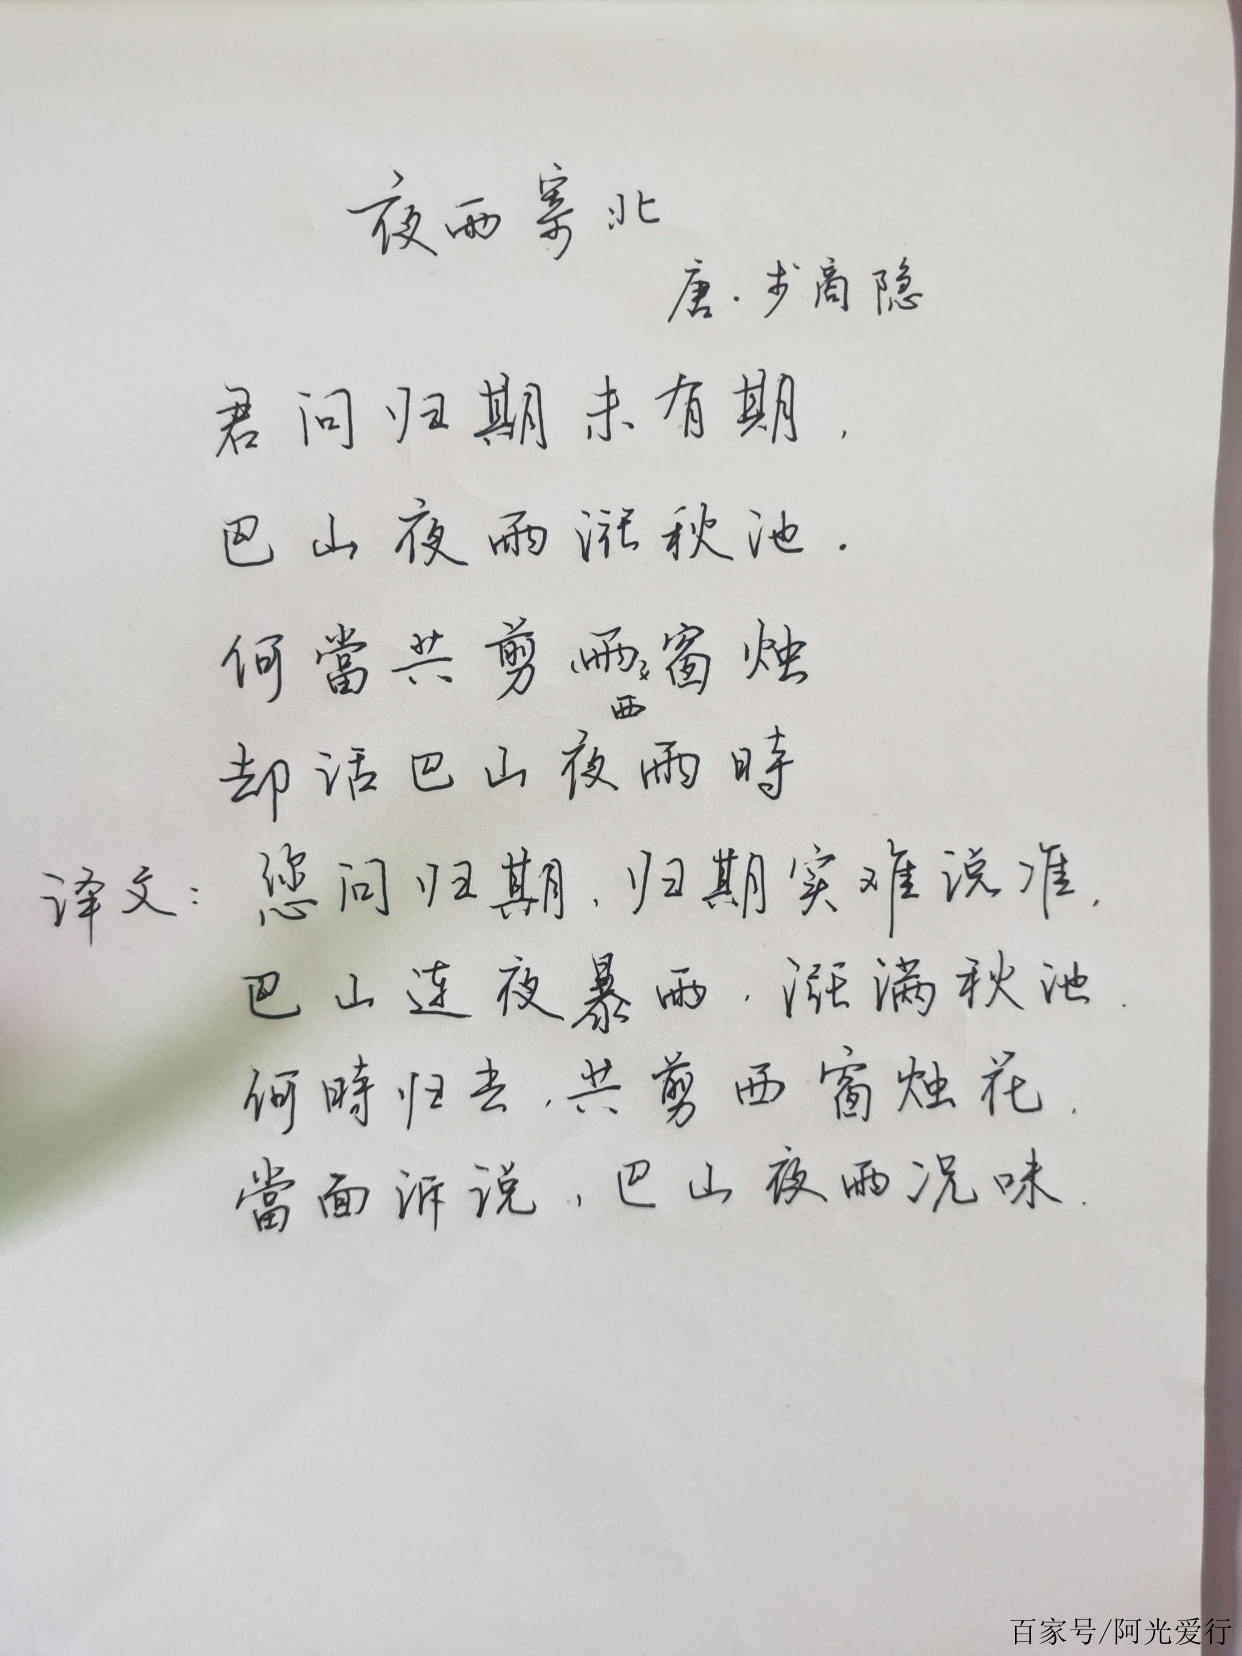 夜雨寄北
唐·李商隐
君问归期未有期，
巴山夜雨涨秋池．
何當共剪雨窗烛
西
却话巴山夜雨時
译文：您问归期，归期实难说准，
巴山连夜暴雨，涨满秋池．
何時归去，共剪西窗烛花．
當面诉说，巴山夜雨况味．
百家号/阿光爱行